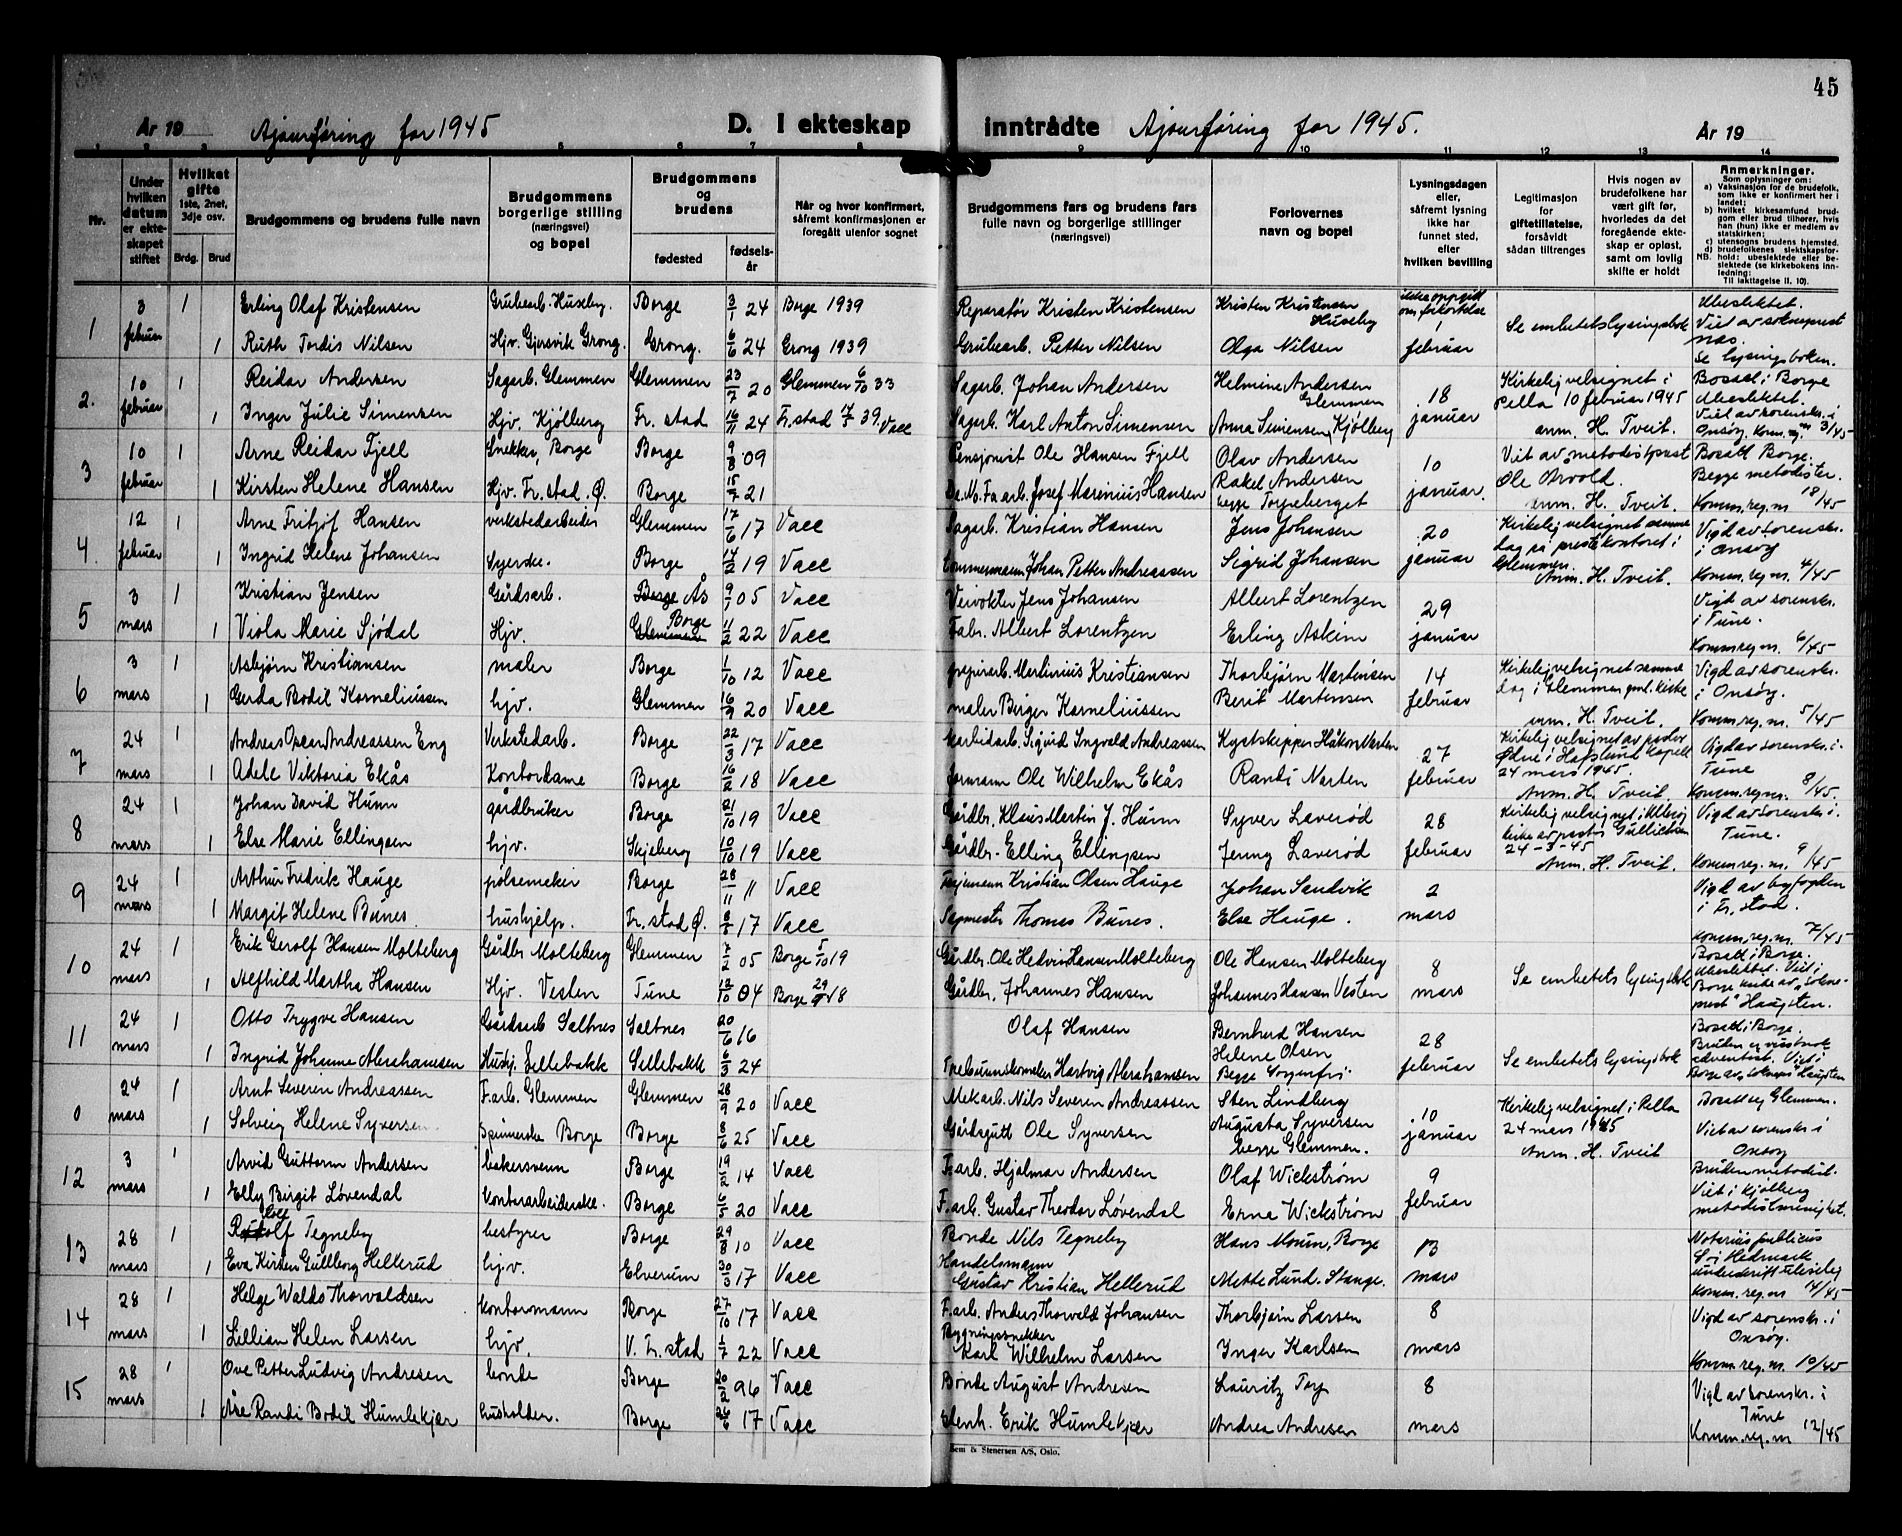 45
År 19 Ajourføring for 1945 D. I ekteskap inntrådte Ajourføring for 1945. År 19
1 2 3 5 6 7 8 9 10 11 12 13 14
Nr.
Under hvilken datum er ekte- skapet stiftet
Hvilket gifte 1ste, 2net, 3dje osv.
Brdg. Brud
Brudgommens og brudens fulle navn
Brudgommens borgerlige stilling (næringsvei) og bopel
Brudgommens og brudens
fødested
fødsels- år
Når og hvor konfirmert, såfremt konfirmasjonen er foregått utenfor sognet
Brudgommens fars og brudens fars fulle navn og borgerlige stillinger (næringsvei)
Forlovernes navn og bopel
Lysningsdagen eller, såfremt lysning ikke har funnet sted, eller hvilken bevilling
Legitimasjon for giftetillatelse, forsåvidt sådan tiltrenges
Hvis nogen av brudefolkene har vært gift før, hvorledes da det foregående ekte- skap er opløst, samt om lovlig skifte er holdt
Anmerkninger.
Som oplysninger om:
a) Vaksinasjon for de brudefolk, som ikke er konfirmert her i landet;
b) hvilket kirkesamfund brud- gom eller brud tilhører, hvis han (hun) ikke er medlem av statskirken;
c) utensogns brudens hjemsted.
d) brudefolkenes slektskapsfor- hold: ubeslektede eller be- slektede (se kirkebokens inn- ledning:
NB. Til iakttagelse II. 10).
1 3 februar 1 Erling Olaf Kristensen Grubearb. Huseby. Borge 3/1 24 Borge 1939 Reparatør Kristen Kristensen Kristen Kristensen Huseby ikke oppgitt Ubeslektet.
1 Ruth Tordis Nilsen Hjv. Gjersvik Grong. Grong. 6/6 24 Grong 1939 Grubearb. Petter Nilsen Olga Nilsen februar Se embetslysingsbok Viet av sokneprest Se lysingsboken.
2. 10 februar 1 Reidar Andersen Sagarb. Glemmen Glemmen 23/7 20 Glemmen 6/10 33 Sagarb. Johan Andersen Helmine Andersen Glemmen 18 januar Kirkelig velsignet i Pella 10 februar 1945 Bosatt i Borge Ubeslektet.
1 Inger Julie Simensen Hjv. Kjølberg Fr. stad 16/11 24 Fr. stad 39. Vacc Sagarb. Karl Anton Simensen Anna Simensen, Kjølberg anm. H. Tveit. Viet av sorenskr. i Onsøy. Komm. reg. nr 3/45
3 10 februar 1 Arne Reidar Fjell Snekker, Borge Borge 9/8 09 Pensjonist Ole Hansen Fjell Olav Andersen 10 januar. Viet av metodistprest Ole Arvold. Bosatt Borge.
1 Kirsten Helene Hansen Hjv. Fr. stad. Ø. Borge 15/7 21 Josef Marinius Hansen Rakel Andersen begge Torpeberget anm. H. Tveit. Begge metodister. Komm. reg. nr 18/45
4 12 februar 1 Arne Fritjof Hansen verkstedarbeider Glemmen 17/6 17 Vacc Sagarb. Kristian Hansen Jens Johansen 20 januar Kirkelig velsignet samme dag på prestekontoret i Glemmen. Vigd av sorenskr. i Onsøy
1 Ingrid Helene Johansen Syerske. Borge 14/2 19 Vacc Tømmermann Johan Petter Andreassen Sigrid Johansen Anm. H. Tveit. Komm. reg. nr. 4/45
5 3 mars 1 Kristian Jensen Gårdsarb. Borge Ås 9/1 05 Vacc Veivokter Jens Johansen Albert Lorentzen 29 januar Vigd av sorenskr. i Tune.
1 Viola Marie Sjødal Hjv. Glemmen Borge 11/2 22 Vacc Fabr. Albert Lorentzen Erling Askim Komm. reg. nr. 6/45
6 3 mars 1 Asbjørn Kristiansen maler Borge 1/10 12 Vacc Martinius Kristiansen Thorbjørn Martinsen 14 februar Kirkelig velsignet samme dag i Glemmen gml. kirke Vigd av sorenskr. i Onsøy.
1 Gerda Bodil Korneliussen hjv. Glemmen 16/9 20 Vacc maler Birger Korneliussen Berit Martensen anm. H. Tveit. Komm. reg. nr. 5/45
7 24 mars 1 Andreas Oscar Andreassen Eng Verkstedarb. Borge 22/3 17 Vacc Karbidarb. Sigurd Ingvald Andreassen Kystskipper Håkon Narten 27 februar Kirkelig velsignet av pastor Ødne i Hafslund kapell 24 mars 1945. Vigd av sorenskr. i Tune
1 Adele Viktoria Ekås Kontordame Borge 16/2 18 Vacc formann Ole Wilhelm Ekås Randi Narten Anm. H. Tveit. Komm. reg. nr. 8/45.
8 24 mars 1 Johan David Hunn gårdbruker Borge 21/10 19 Vacc Gårdbr. Klaus Martin J. Hunn Syver Laverød 28 februar Kirkelig velsignet i Ullerøy kirke av pastor Gullichsen 24-3-45 Vigd av sorenskr. i Tune.
1 Else Marie Ellingsen hjv. Skjeberg 10/10 19 Vacc Gårdbr. Elling Ellingsen Jenny Laverød Anm. H. Tveit. Komm. reg. nr. 9/45
9 24 mars 1 Arthur Fredrik Hauge pølsemaker Borge 28/11 11 Vacc Kristian Olsen Hauge Johan Sandvik 2 mars Vigd av byfogden i Fr. stad.
1 Margit Helene Bunes hushjelp. Fr. stad Ø. 17 Vacc Sagmester Thomas Bunes. Else Hauge. Komm. reg. nr. 7/45
10 24 mars 1 Erik Gerolf Hansen Molteberg Gårdbr. Molteberg Glemmen 7/2 05 Borge 5/10 19 Gårdbr. Ole Hedvin Hansen Molteberg Ole Hansen Molteberg 8 mars Se embetets lysingsbok Bosatt i Borge.
1 Alfhild Martha Hansen Hjv. Vesten Tune 12/10 04 Borge 18 Gårdbr. Johannes Hansen Johannes Hansen Vesten Ubeslektet. Viet i Borge kirke av "sokne- prest" Haugsten.
11 24 mars 1 Otto Trygve Hansen Gårdsarb Saltnes Saltnes 20/6 16 Olaf Hansen Bernhard Hansen 28 februar Se embetets lysingsbok Bosatt i Borge.
1 Ingrid Johanne Abrahamsen Hushj. Sellebakk Sellebakk 6/3 24 Hartvig Abrahamsen Helene Olsen Begge Sorgenfri Bruden er adventist. Viet i Borge av "sokneprest" Haugsten
0 24 mars 1 Arnt Severen Andreassen F.arb. Glemmen Glemmen 28/9 20 Vacc Mek.arb. Nils Severen Andreassen Sten Lindberg 10 januar Kirkelig velsignet i Pella 24 mars 1945 Bosatt og Glemmen.
1 Solveig Helene Syversen Spinnerske Borge Borge 8/6 25 Vacc Gårdsgutt Ole Syversen Augusta Syversen begge Glemmen. Anm. H. Tveit Viet av sorenskr. i Onsøy
12 3 mars 1 Arvid Guttorm Andersen bakersvenn Borge 19/2 14 Vacc F.arb. Hjalmar Andersen Olaf Wickstrøm 9 februar Bruden metodist.
1 Elly Birgit Løvendal kontorarbeiderske. Borge 6/5 20 Vacc F.arb. Gustav Theodor Løvendal Erna Wickstrøm Viet i Kjølberg metodistmenighet.
13 28 mars 1 Rolf Tegneby bestyrer Borge 29/8 10 Vacc Bonde Nils Tegneby Hans Moum, Borge 13 mars Notarius publicus S. i Hedmark underskrift uleselig
1 Eva Kirsten Gullborg Hellerud hjv. Elverum 30/3 17 Vacc Handelsmann Gustav Kristian Hellerud Mette Lund. Stange. Komm. reg. nr. 14/45
14 28 mars 1 Helge Waldo Thorvaldsen kontormann Borge 27/10 17 Vacc F.arb. Anders Thorvald Johansen Thorbjørn Larsen 8 mars Vigd av sorenskr. i Onsøy.
1 Lillian Helen Larsen hjv. V. Fr. stad 1/7 22 Vacc Bygningssnekker Karl Wilhelm Larsen Inger Karlsen Komm. reg. nr. 10/45
15 28 mars 1 Ove Petter Ludvig Andresen bonde Borge 20/2 96 Vacc Bonde August Andresen Lauritz Torp 8 mars Vigd av sorenskr. i Tune
1 Åse Randi Bodil Humlekjær husholder. Borge 26/6 17 Vacc Stenh. Erik Humlekjær Andrea Andresen Komm. reg. nr 12/45
Sem & Stenersen A/S, Oslo.